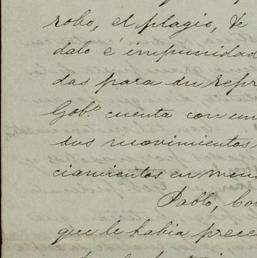 robo, el plagio, &
dato é impunidad
das para su repr
Gob.º cuenta con un
sus movimientos,
cianientos en men
Pablo, Co
que le habia prece